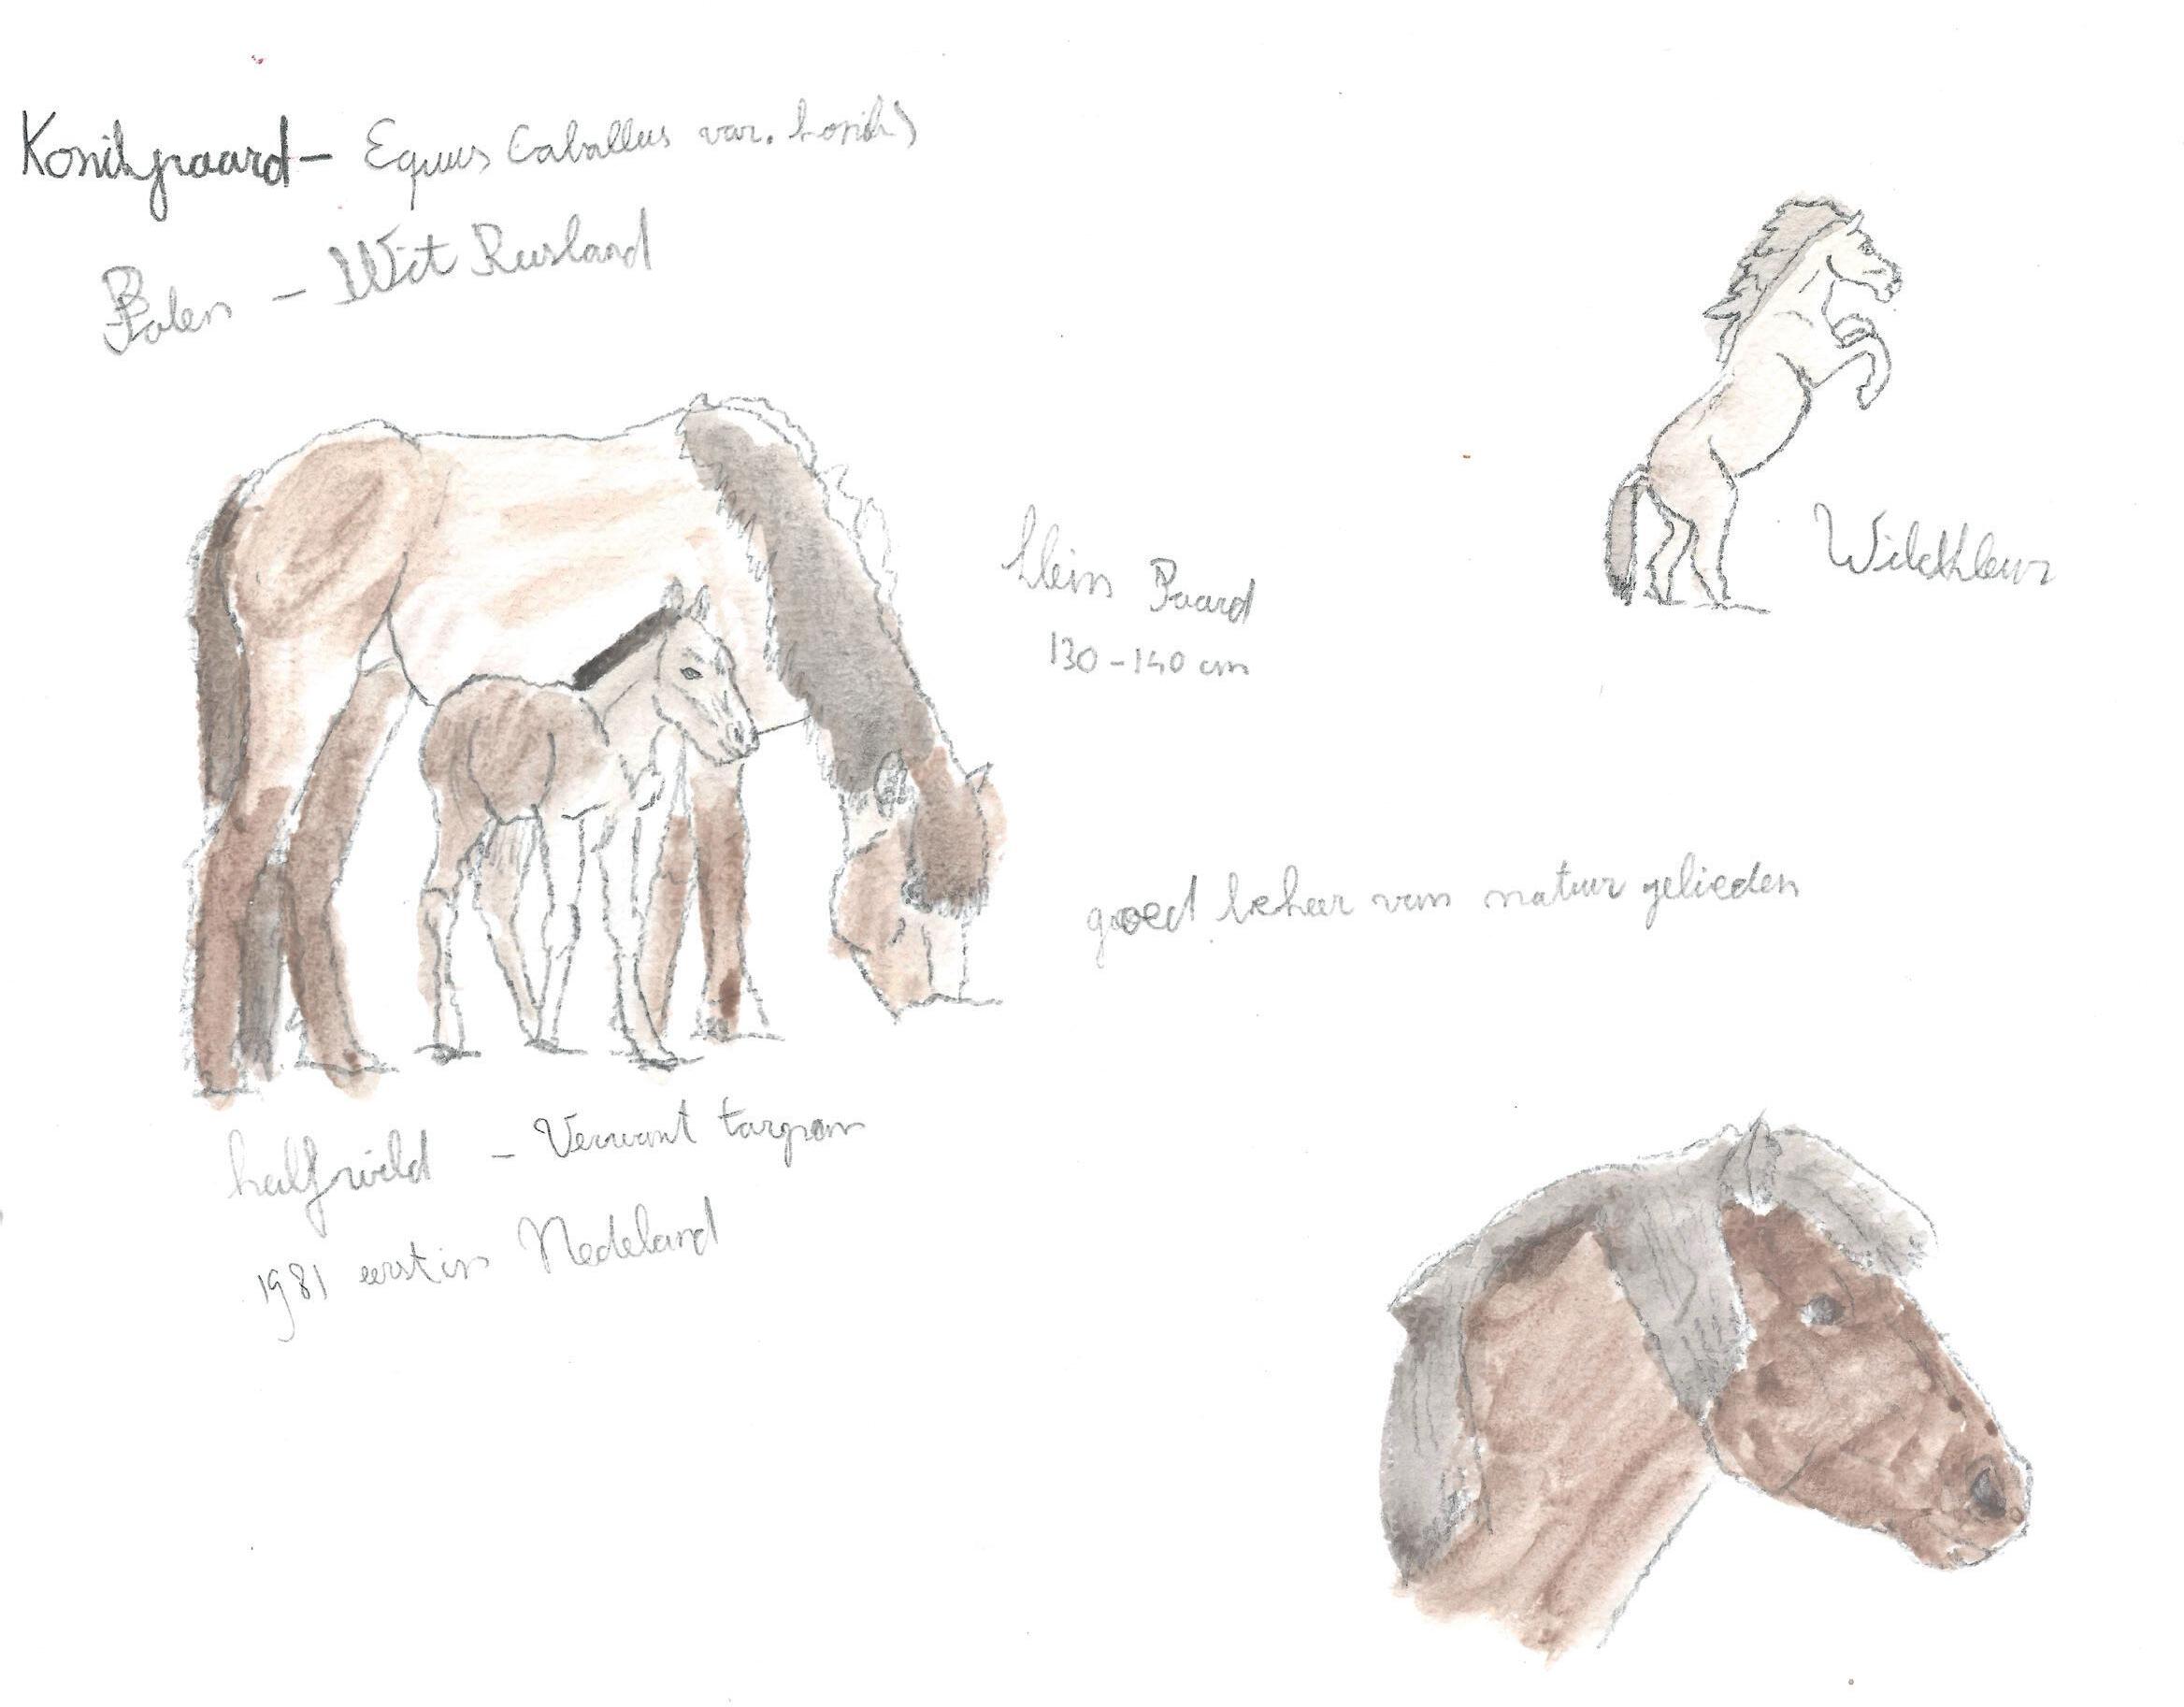 Konikpaard - Equus Caballus var. konik)
Polen - Wit Rusland
klein Paard
130-140 cm
Wildkleur
goed beheer van natuur gelieden
halfwild - Verwant tarpan
1981 eerst in Nedeland